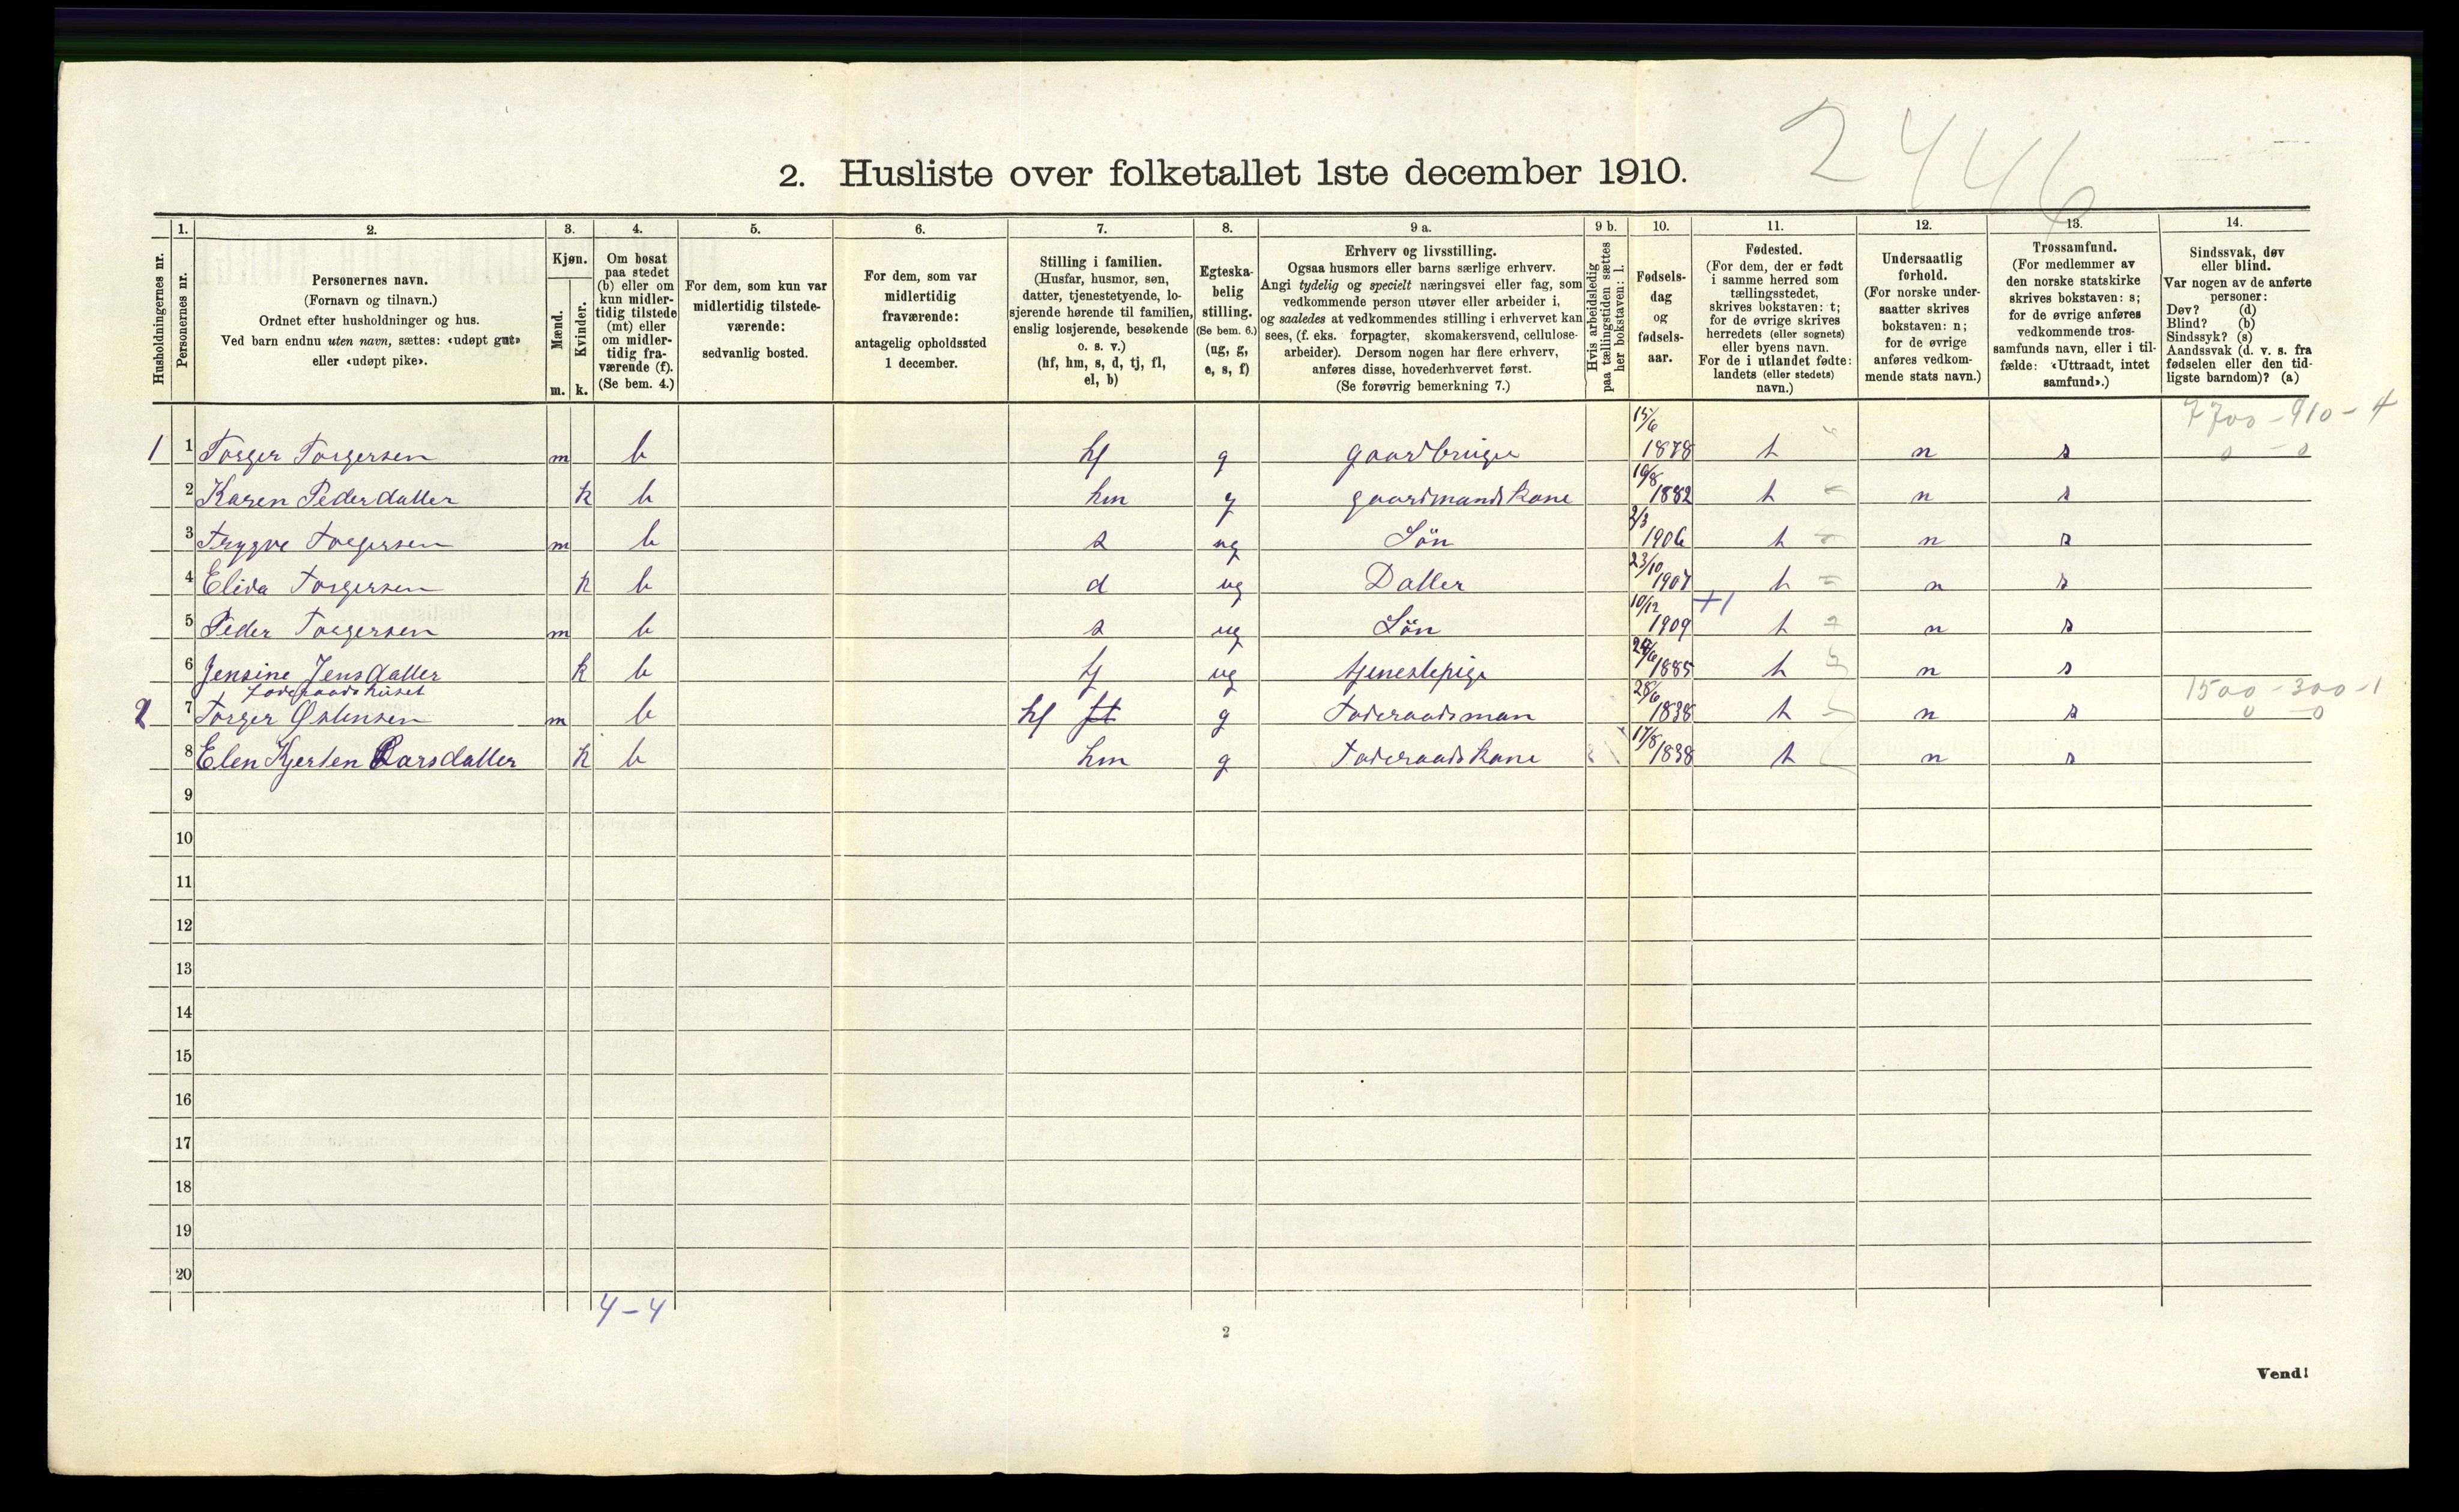 2446
2. Husliste over folketallet 1ste december 1910.
Husholdningernes nr.
1. Personernes nr.
2. Personernes navn. (Fornavn og tilnavn.) Ordnet efter husholdninger og hus. Ved barn endnu uten navn, sættes: «udøpt gut» eller «udøpt pike».
3. Kjøn. Mænd. m. Kvinder. k.
4. Om bosat paa stedet (b) eller om kun midler-tidig tilstede (mt) eller om midler-tidig fra-værende (f). (Se bem. 4.)
5. For dem, som kun var midlertidig tilstede-værende: sedvanlig bosted.
6. For dem, som var midlertidig fraværende: antagelig opholdssted 1 december.
7. Stilling i familien. (Husfar, husmor, søn, datter, tjenestetyende, lo-sjerende hørende til familien, enslig losjerende, besøkende o. s. v.) (hf, hm, s, d, tj, fl, el, b)
8. Egteska-belig stilling. (Se bem. 6.) (ug, g, e, s, f)
9 a. Erhverv og livsstilling. Ogsaa husmors eller barns særlige erhverv. Angi tydelig og specielt næringsvei eller fag, som vedkommende person utøver eller arbeider i, og saaledes at vedkommendes stilling i erhvervet kan sees, (f. eks. forpagter, skomakersvend, cellulose-arbeider). Dersom nogen har flere erhverv, anføres disse, hovederhvervet først. (Se forøvrig bemerkning 7.)
9 b. Hvis arbeidsledig paa tællingstiden sættes her bokstaven: l.
10. Fødsels-dag og fødsels-aar.
11. Fødested. (For dem, der er født i samme herred som tællingsstedet, skrives bokstaven: t; for de øvrige skrives herredets (eller sognets) eller byens navn. For de i utlandet fødte: landets (eller stedets) navn.)
12. Undersaatlig forhold. (For norske under-saatter skrives bokstaven: n; for de øvrige anføres vedkom-mende stats navn.)
13. Trossamfund. (For medlemmer av den norske statskirke skrives bokstaven: s; for de øvrige anføres vedkommende tros-samfunds navn, eller i til-fælde: «Uttraadt, intet samfund».)
14. Sindssvak, døv eller blind. Var nogen av de anførte personer: Døv? (d) Blind? (b) Sindssyk? (s) Aandssvak (d. v. s. fra fødselen eller den tid-ligste barndom)? (a)
7700 - 910 - 4
0 - 0
1 1 Torger Torgersen m b hf g gaardbruger 15/6 1878 t n s
2 Karen Pedersdatter k b hm g gaardmandskone 1882 t n s
3 Trygve Torgersen m b s ug Sön 2/3 1906 t n s
4 Elida Torgersen k b d ug Datter 23/10 1907 t n s
5 Peder Torgersen m b s ug Sön 10/12 1909 +1 t n s
6 Jensine Jensdatter k b tj ug tjenestepige 1885 t n s
Foderaadshuset
1500 - 300 - 1
0 - 0
2 7 Torger Østensen m b hf g Foderaadsman 28/6 1838 t n s
8 Elen Kjersten Larsdatter k b hm g Foderaadskone 17/8 1838 t n s
9
10
11
12
13
14
15
16
17
18
19
20
4 - 4
2
Vend!